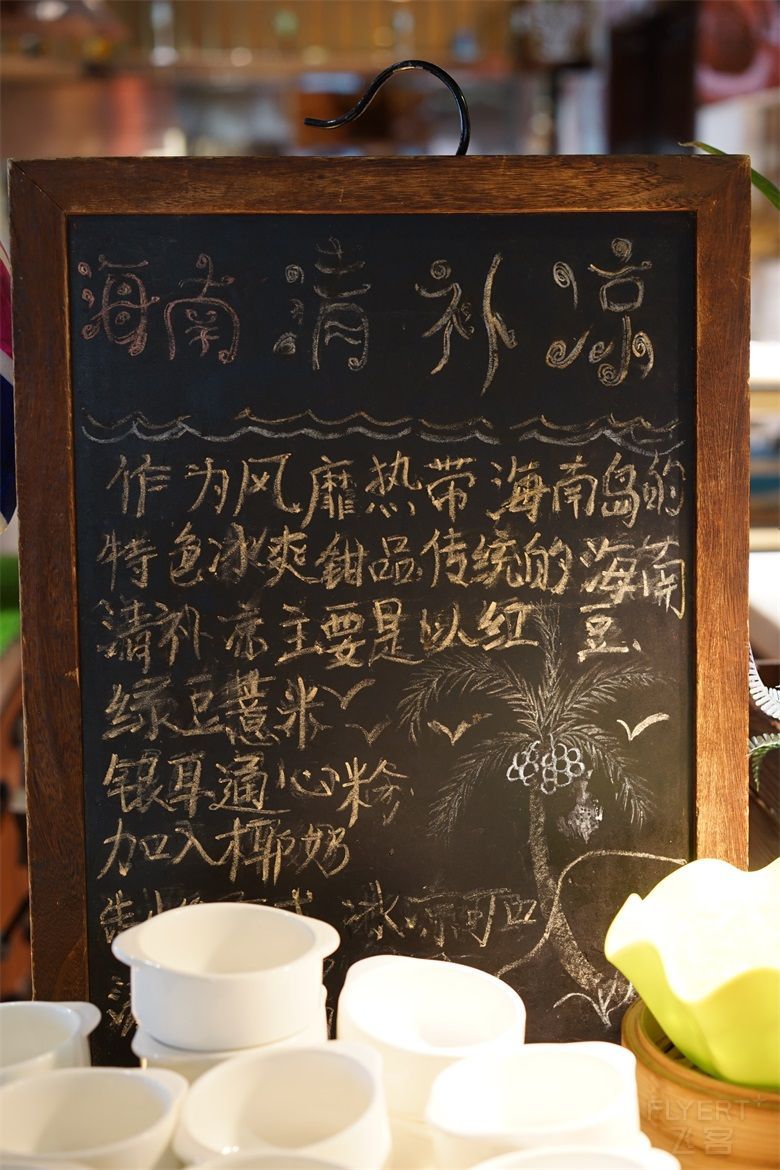 海南清补凉
作为风靡热带海南岛的
特色冰爽甜品传统的海南
清补凉主要是以红豆、
绿豆薏米
银耳通心粉
加入椰奶
冰凉可口
FLYERT
飞客